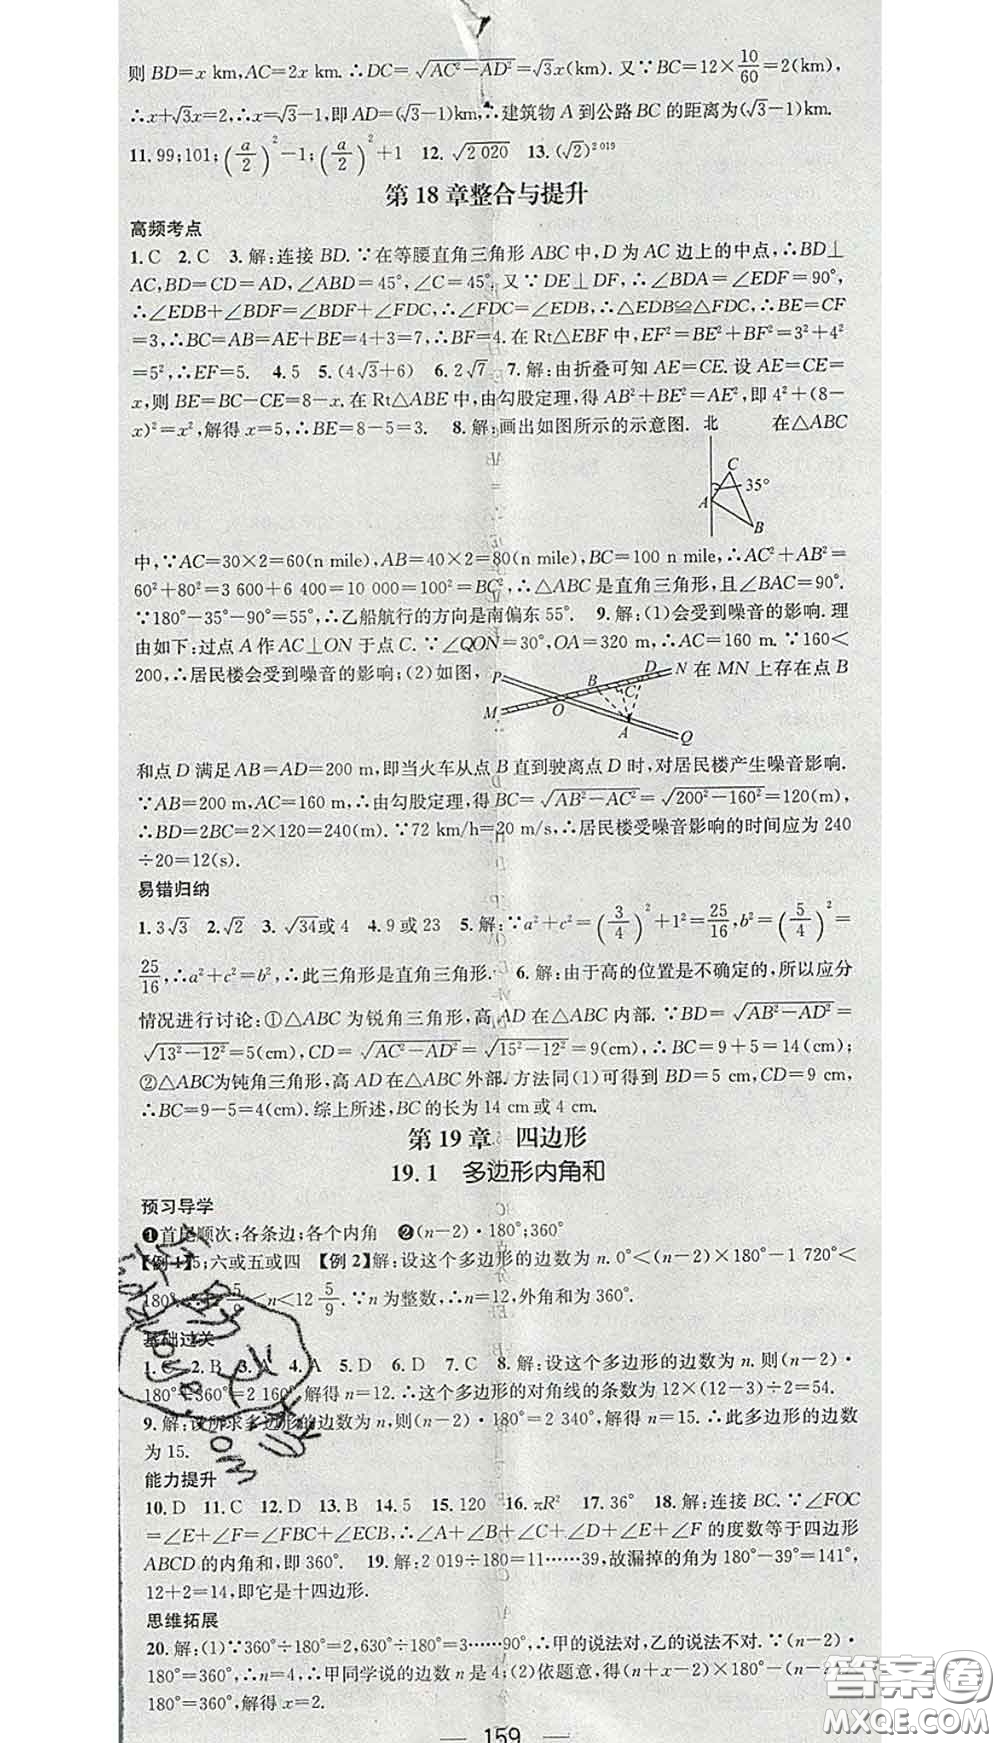 则 BD=x km,AC=2x km.∴DC=√(AC²-AD²)=√3x(km).又∵BC=12×10/60=2(km),
∴x+√3x=2,∴x=√3-1,即 AD=(√3-1)km,∴建筑物 A 到公路 BC 的距离为(√3-1)km.
11.99;101;(a/2)²-1;(a/2)²+1 12.√2 020 13.(√2)²⁰¹⁹
第 18 章整合与提升
高频考点
1.C 2.C 3.解:连接 BD.∵在等腰直角三角形 ABC 中,D 为 AC 边上的中点,∴BD⊥
AC,BD=CD=AD,∠ABD=45°,∠C=45°.又∵DE⊥DF,∴∠BDA=∠EDF=90°,
∴∠EDB+∠BDF=∠BDF+∠FDC,∴∠FDC=∠EDB,∴△EDB≌△FDC,∴BE=CF
=3,∴BC=AB=AE+BE=4+3=7,∴BF=4.在 Rt△EBF 中,EF²=BE²+BF²=3²+4²
=5²,∴EF=5. 4.5 5.(4√3+6) 6.2√7 7.解:由折叠可知 AE=CE.设 AE=CE=
x,则 BE=BC-CE=8-x.在 Rt△ABE 中,由勾股定理,得 AB²+BE²=AE²,即 4²+(8-
x)²=x²,解得 x=5,∴BE=8-5=3. 8.解:画出如图所示的示意图. 北 在△ABC
C
35°
A
B
中,∵AC=30×2=60(n mile),AB=40×2=80(n mile),BC=100 n mile,∴AC²+AB²=
60²+80²=3 600+6 400=10 000=100²=BC²,∴△ABC 是直角三角形,且∠BAC=90°.
∵180°-35°-90°=55°,∴乙船航行的方向是南偏东 55°. 9.解:(1)会受到噪音的影响.理
由如下:过点 A 作 AC⊥ON 于点 C.∵∠QON=30°,OA=320 m,∴AC=160 m.∵160<
200,∴居民楼会受到噪音的影响;(2)如图, P B D N 在 MN 上存在点 B
C
M O
A Q
和点 D 满足 AB=AD=200 m,即当火车从点 B 直到驶离点 D 时,对居民楼产生噪音影响.
∵AB=200 m,AC=160 m,∴由勾股定理,得 BC=√(AB²-AC²)=√(200²-160²)=120(m),
∴BD=2BC=2×120=240(m).∵72 km/h=20 m/s,∴居民楼受噪音影响的时间应为 240
÷20=12(s).
易错归纳
1.3√3 2.√2 3.√34或 4 4.9 或 23 5.解:∵a²+c²=(3/4)²+1²=25/16,b²=(5/4)²=
25/16,∴a²+c²=b²,∴此三角形是直角三角形. 6.解:由于高的位置是不确定的,所以应分
情况进行讨论:①△ABC 为锐角三角形,高 AD 在△ABC 内部.∵BD=√(AB²-AD²)=
√(13²-12²)=5(cm),CD=√(AC²-AD²)=√(15²-12²)=9(cm),∴BC=9+5=14(cm);
②△ABC为钝角三角形,高 AD在△ABC 外部.方法同(1)可得到 BD=5 cm,CD=9 cm,
∴BC=9-5=4(cm).综上所述,BC 的长为 14 cm 或 4 cm.
第 19 章 四边形
19.1 多边形内角和
预习导学
❶首尾顺次;各条边;各个内角 ❷(n-2)·180°;360°
【例 1】5;六或五或四 【例 2】解:设这个多边形的边数为 n.0°<(n-2)×180°-1 720°<
180°, 5/9<n<12 5/9.∵n 为整数,∴n=12,外角和为 360°.
基础过关
1.C 2.B 3.A 4.A 5.D 6.D 7.C 8.解:设这个多边形的边数为 n.则(n-2)·
180°+360°=2 160°,解得 n=12.∴这个多边形的对角线的条数为 12×(12-3)÷2=54.
9.解:设所求多边形的边数为 n,则(n-2)·180°=2 340°,解得 n=15.∴此多边形的边数
为 15.
能力提升
10.D 11.C 12.D 13.B 14.5 15.120 16.πR² 17.36° 18.解:连接 BC.∵∠FOC
=∠E+∠F=∠FBC+∠ECB,∴∠A+∠B+∠C+∠D+∠E+∠F 的度数等于四边形
ABCD 的内角和,即 360°. 19.解:2 019÷180=11……39,故漏掉的角为 180°-39°=141°,
12+2=14,即它是十四边形.
思维拓展
20.解:(1)∵360°÷180°=2,630°÷180°=3……90°,∴甲的说法对,乙的说法不对.∵(n-2)·
180°=360°,∴n=4,∴甲同学说的边数 n 是 4;(2)依题意,得(n+x-2)×180°-(n-2)×
180°=360°,解得 x=2.
答案圈
MXQE.COM
159